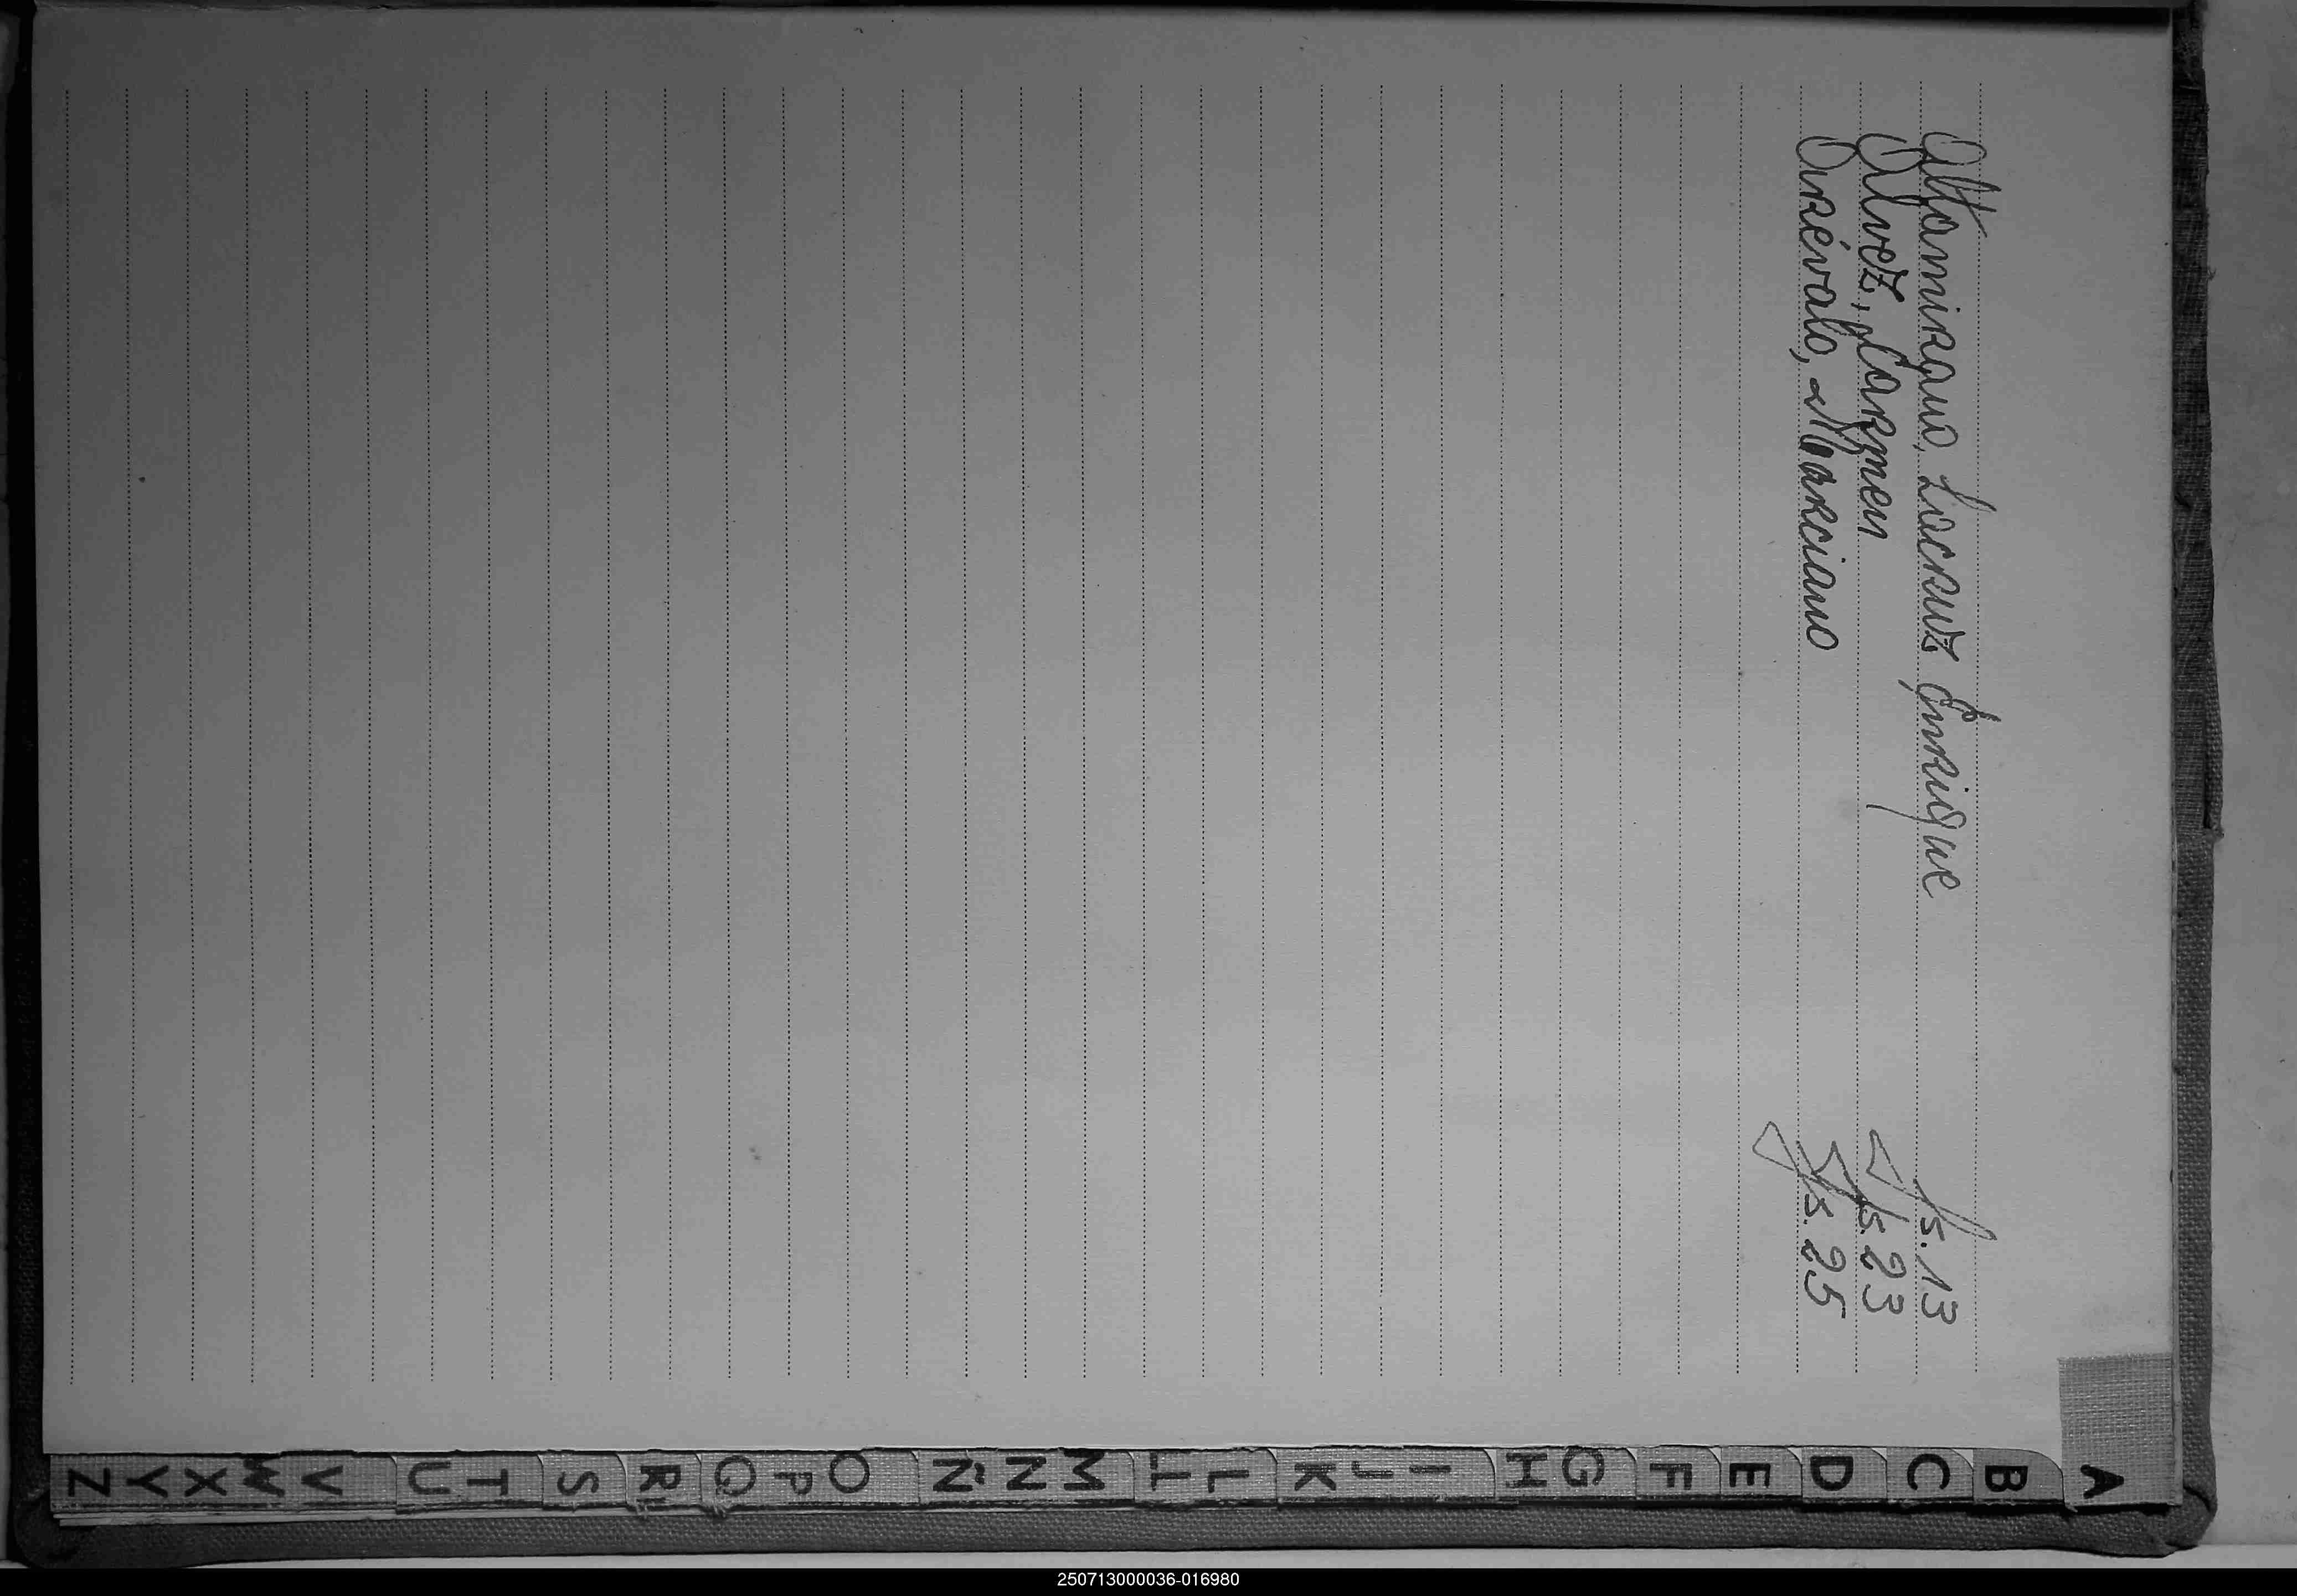 Altamirano, Lacruz, Enrique fs. 13
Alvez, Carmen fs. 23
Arévalo, Marciano fs. 25
A
B
C
D
E
F
G
H
I
J
K
L
LL
M
N
Ñ
O
P
Q
R
S
T
U
V
W
X
Y
Z
250713000036-016980